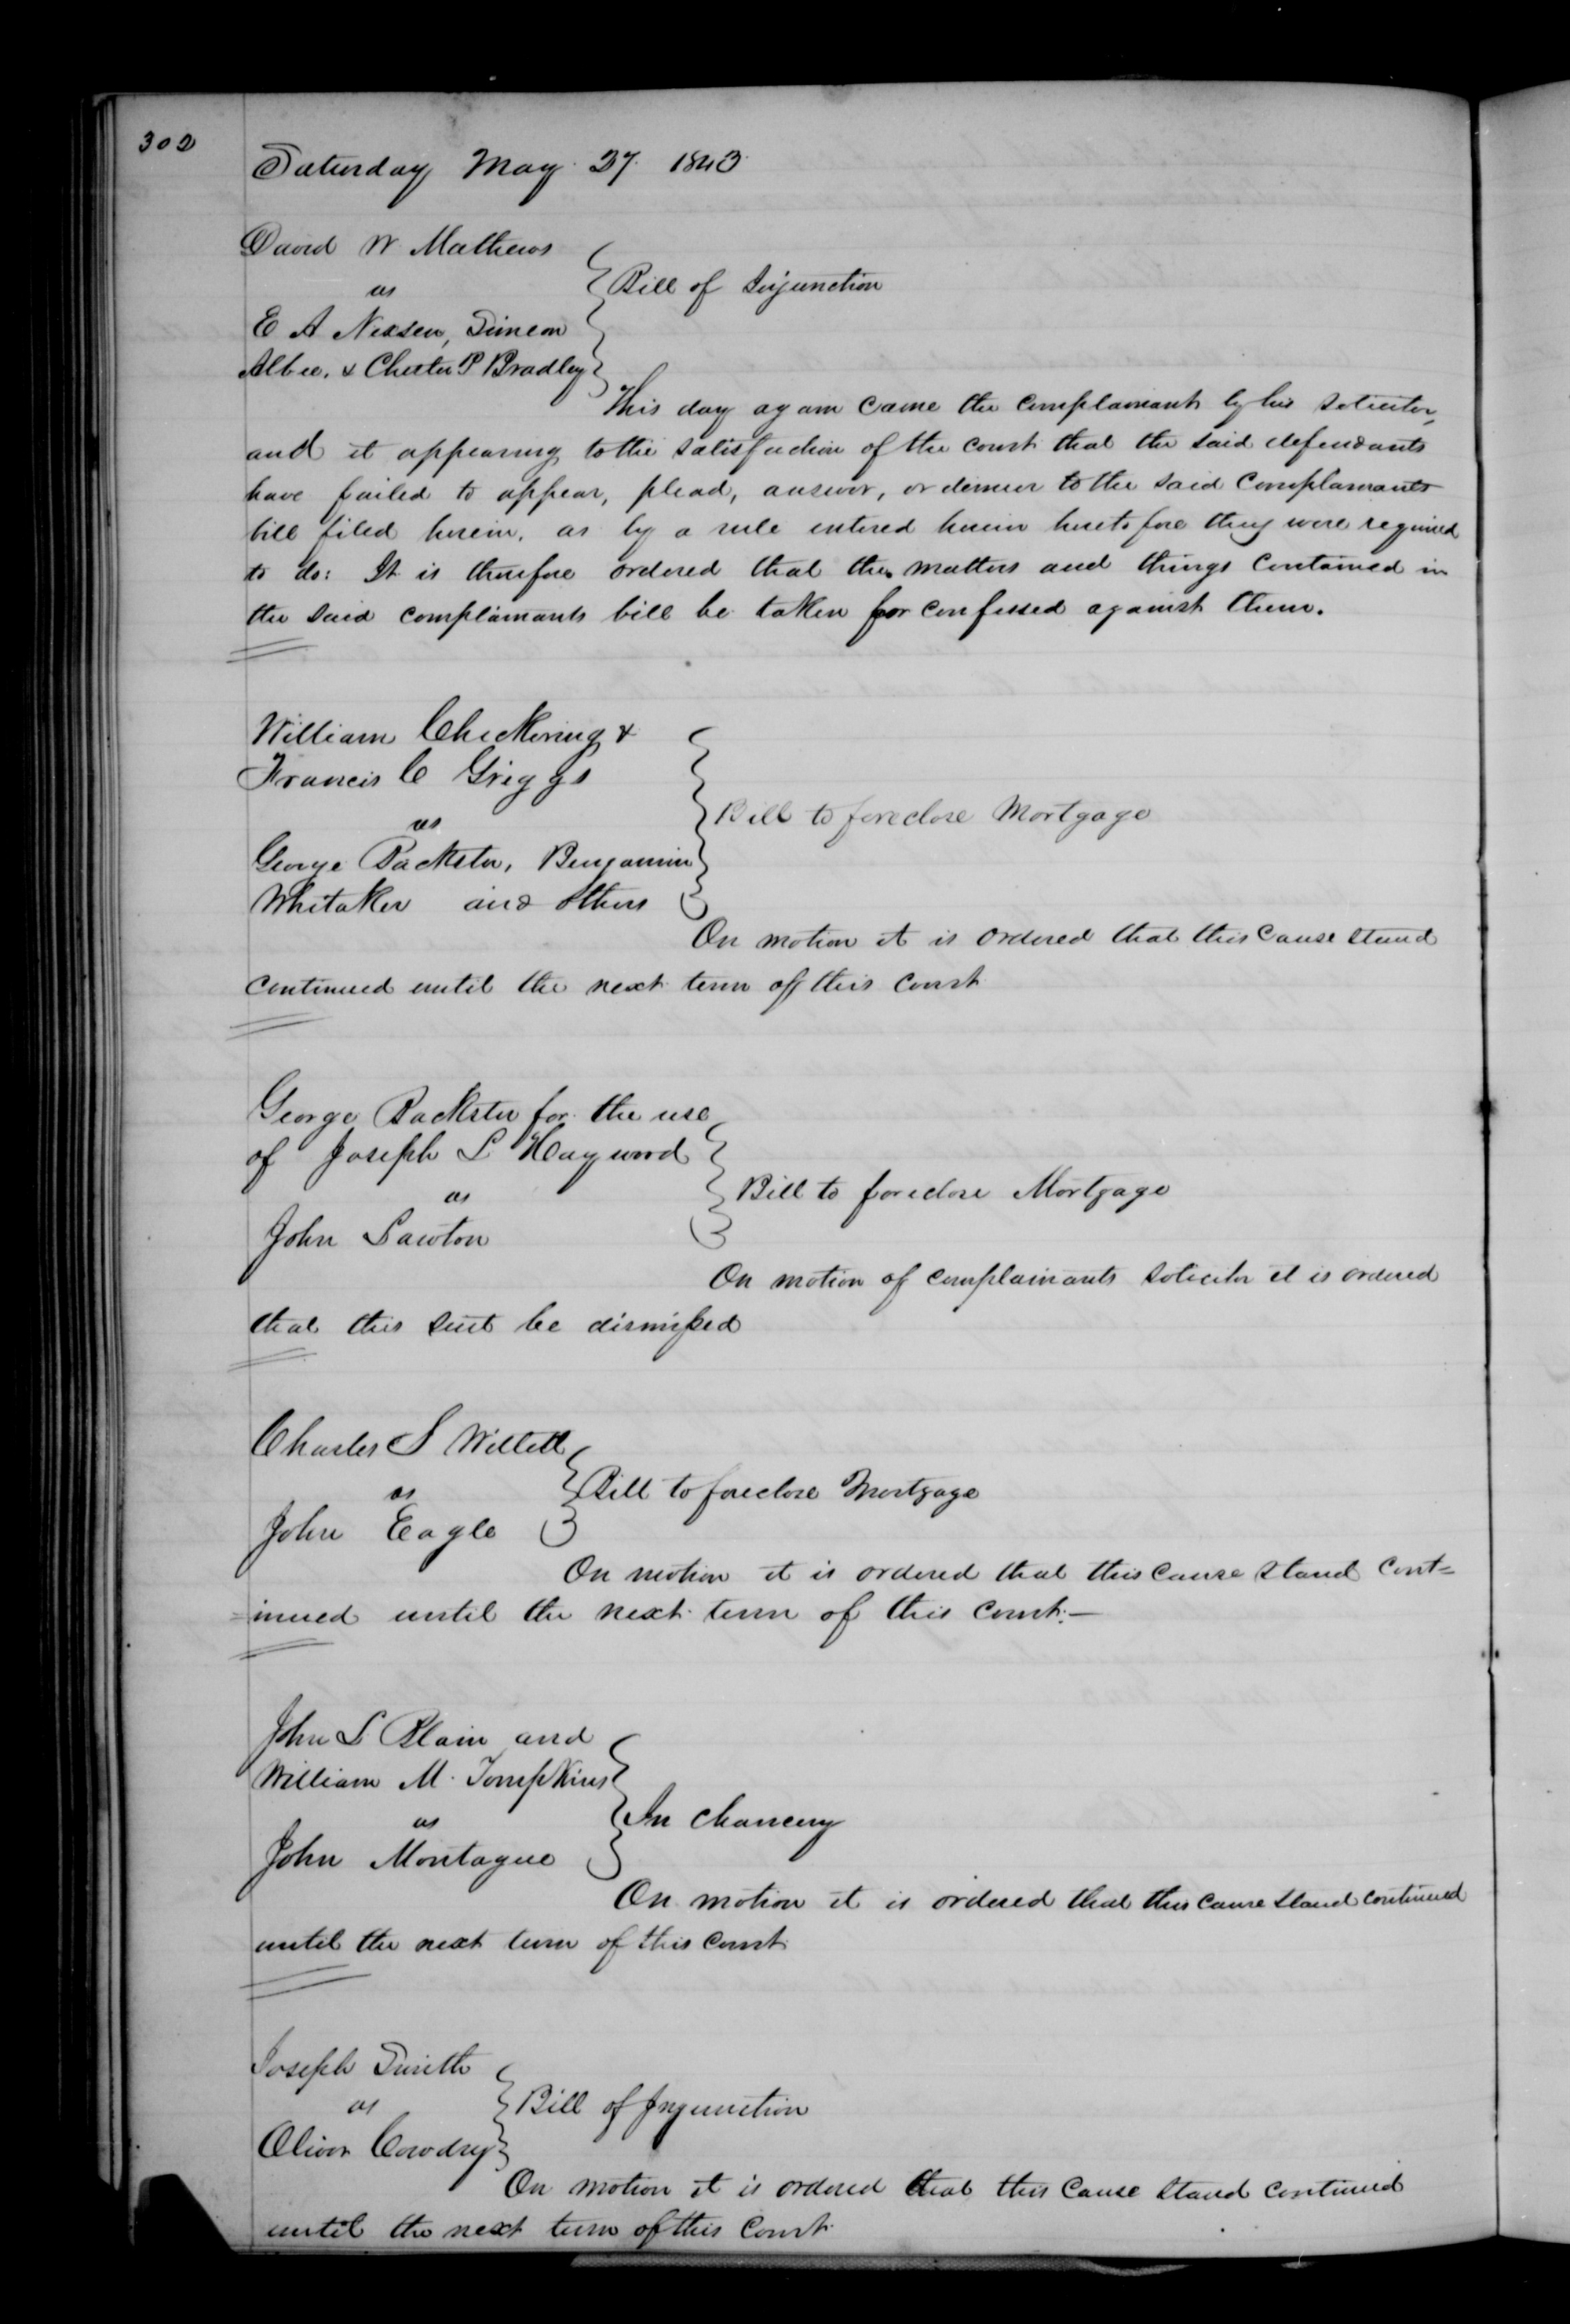 302
Saturday May 27. 1843.
David W Mathews
vs
Bill of Injunction
E A Nexsen, Simeon
Albee, & Chester P Bradley
This day again came the complainant by his solicitor,
and it appearing to the satisfaction of the court that the said defendants
have failed to appear, plead, answer, or demur to the said Complainants
bill filed herein, as by a rule entered herein heretofore they were required
to do: It is therefore ordered that the matters and things contained in
the said complainants bill be taken for confessed against them.
William Chickering &
Francis C Griggs
vs
Bill to foreclose Mortgage
George Backster, Benjamin
Whitaker and others
On motion it is ordered that this cause stand
continued until the next term of this court
George Backster for the use
of Joseph L Haywood
vs
Bill to foreclose Mortgage
John Lawton
On motion of complainants solicitor it is ordered
that this suit be dismissed
Charles S Willett
vs
Bill to foreclose Mortgage
John Eagle
On motion it is ordered that this cause stand cont=
=inued until the next term of this court.—
John L Blain and
William M. Tompkins
vs
In Chancery
John Montague
On motion it is ordered that this cause stand continued
until the next term of this court
Joseph Smith
vs
Bill of Injunction
Oliver Cowdry
On motion it is ordered that this cause stand continued
until the next term of this Court